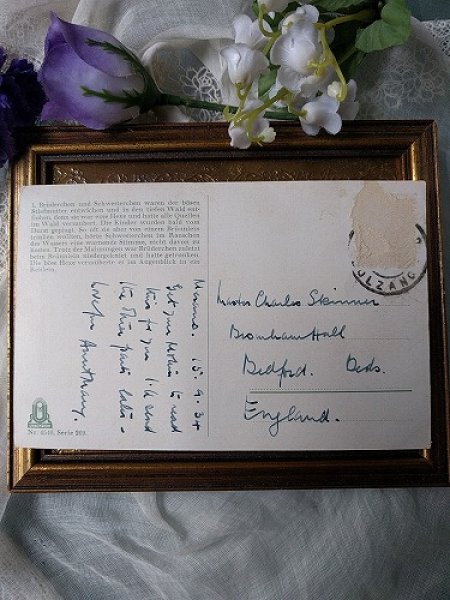 1. Brüderchen und Schwesterchen waren der bösen
Stiefmutter entwichen und in den tiefen Wald ent-
flohen, denn sie war eine Hexe und hatte alle Quellen
im Wald verzaubert. Die Kinder wurden bald vom
Durst geplagt. So oft sie aber von einem Brünnlein
trinken wollten, hörte Schwesterchen im Rauschen
des Wassers eine warnende Stimme, nicht davon zu
kosten. Trotz der Mahnungen war Brüderchen zuletzt
beim Brünnlein niedergekniet und hatte getrunken.
Die böse Hexe verzauberte es im Augenblick in ein
Rehlein.
Nr. Serie 269.
15.9.34
Get your to read
this for you. I'll send
the
love fr
OLZANO
Master Charles Skinner
Bromham Hall
Bedford. Beds.
England.